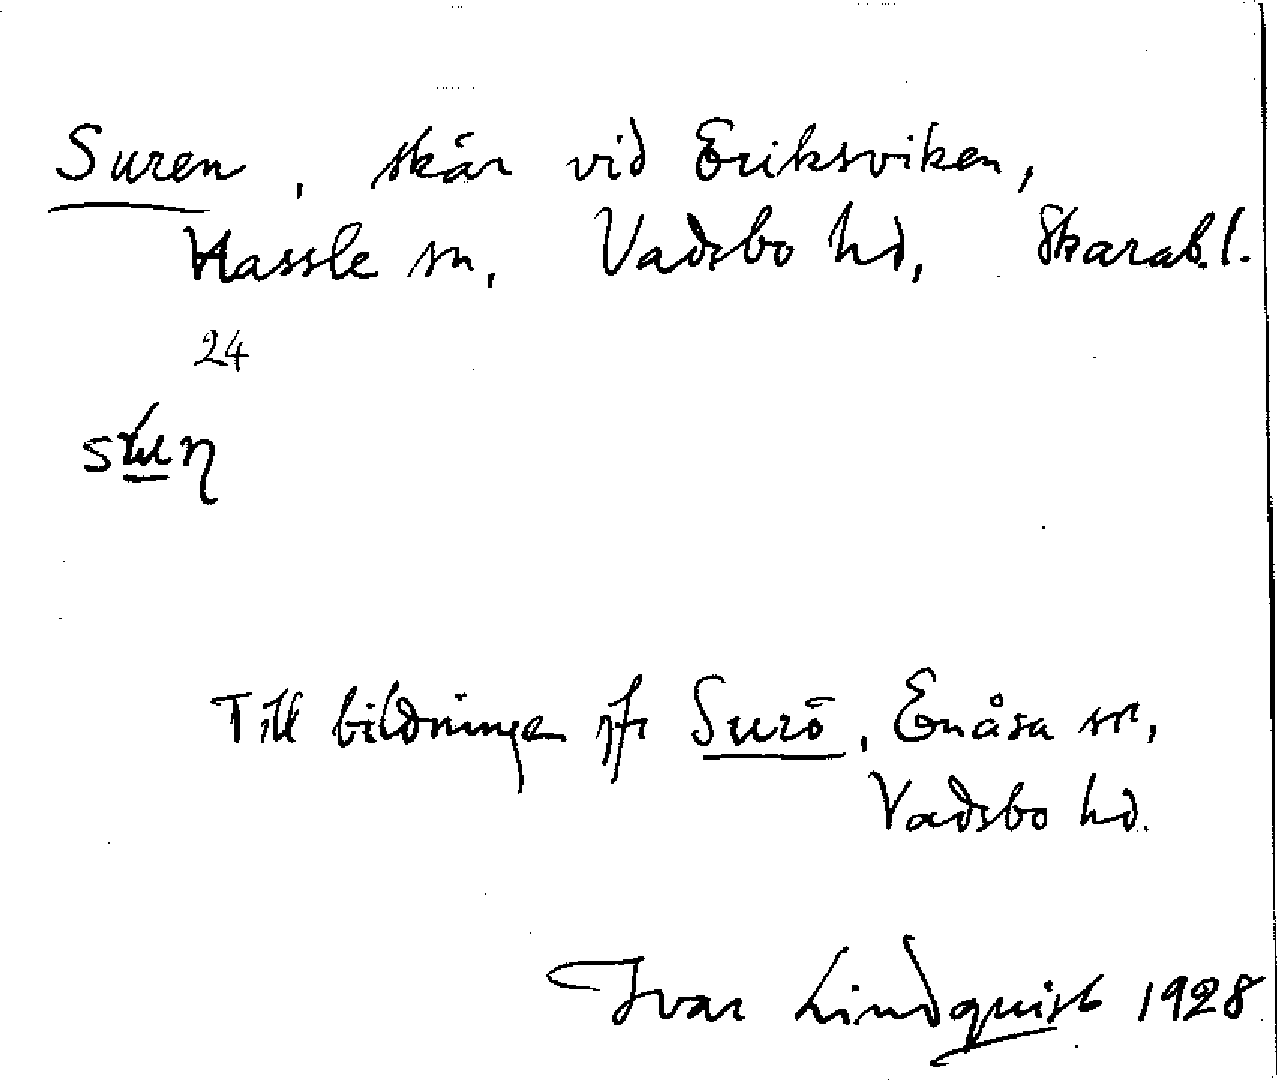 Suren, skär vid Eriksviken,
Hassle sn, Vadsbo hd, Skarab.l.
24
Till bildningen jfr Surö, Enåsa sn,
Vadsbo hd.
Ivar Lindquist 1928